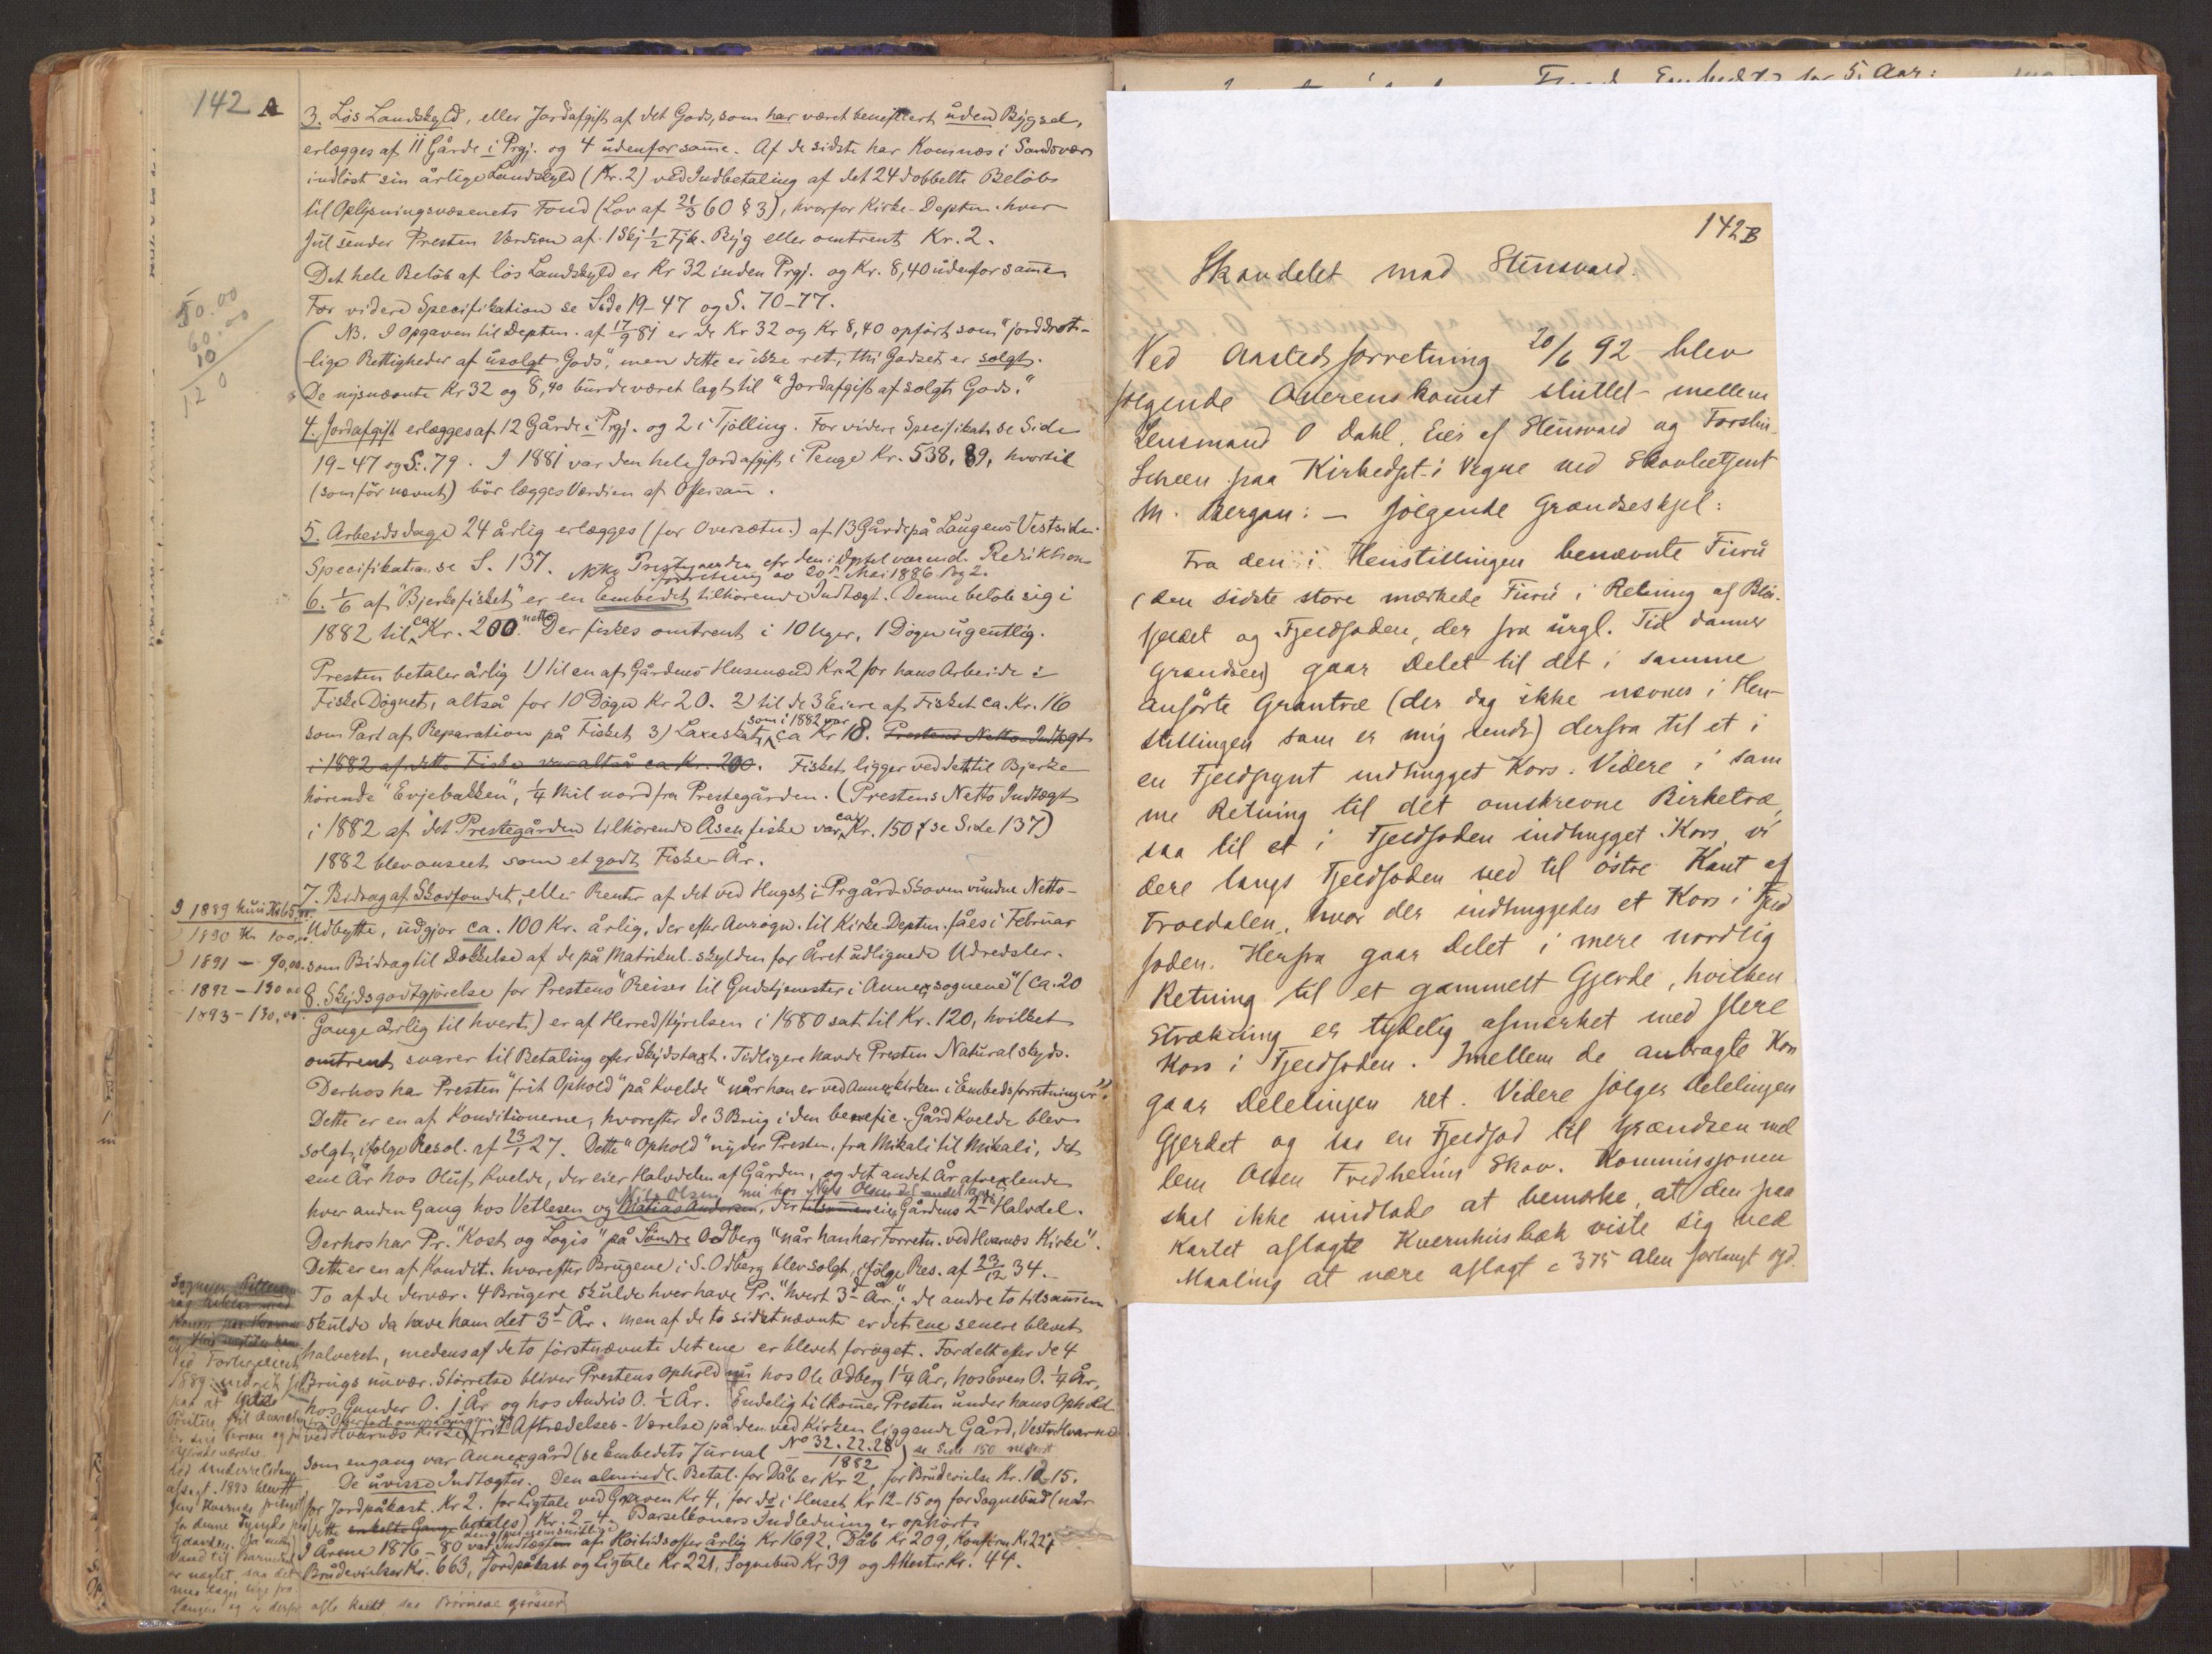 142 A
3. Løs Landskyld, eller Jordafgift af det Gods, som har været benificert uden Bygsel,
erlægges af 11 Gårde i Prgj. og 4 udenfor samme. Af de sidste har Komnæs i Sandsvær
indløst sin årlige Landskyld (Kr. 2) ved Indbetaling af det 24 dobbelte Beløb
til Oplysningsvæsenets Fond (Lov af 21/3 60 § 3), hvorfor Kirke-Deptm. hver
Jul sender Presten Værdien af 1 Skj 1/2 Fjk. Byg eller omtrent Kr. 2.
Det hele Beløb af løs Landskyld er Kr 32 inden Prgj. og Kr. 8,40 udenfor samme
For videre Specifikation se Side 19-47 og S. 70-77.
50.00
60.00
10
120
NB. I Opgaven til Deptm. af 17/9 81 er de Kr 32 og Kr 8,40 opført som "jorddrott-
-lige Rettigheder af usolgt Gods", men dette er ikke ret, thi Godset er solgt.
De nysnævnte Kr 32 og 8,40 burde været lagt til "Jordafgift af solgt Gods."
4. Jordafgift erlægges af 12 Gårde i Prgj. og 2 i Tjølling. For videre Specifikat. se Side
19-47 og S. 79. I 1881 var den hele Jordafgift i Penge Kr. 538,89, hvortil
(som før nævnt) bør lægges Værdien af Offersam.
5. Arbeidsdage 24 årlig erlægges (for Oversætn.) af 13 Gårde på Laugens Vestside.
Specifikation se S. 137.
forretning av 20de Mai 1886. Pag 2.
6. 1/6 af "Bjerkefisket" er en Embedet tilhørende Indtægt. Denne beløb sig i
1882 til ca Kr. 200. netto Der fiskes omtrent i 10 Uger, 1 Døgn ugentlig.
Presten betaler årlig 1) til en af Gårdens Husmænd Kr. 2 for hans Arbeide i
Fiske Døgnet, altså for 10 Døgn Kr 20. 2) til de 3 Eiere af Fisket ca. Kr. 16
som Part af Reparation på Fisket 3) Laxeskat, som i 1882 var ca Kr 18. Prestens Netto Indtægt
i 1882 af dette Fiske var altså ca Kr. 200. Fisket ligger ved det til Bjerke
hørende "Evjebakken", 1/4 Mil nord fra Prestegården. (Prestens Netto Indtægt
i 1882 af det Prestegården tilhørende Åsenfiske var ca Kr. 150 (se Side 137)
1882 blev anseet som et godt Fiske-År.
7. Bidrag af Skovfondet, eller Renter af det ved Hugst i Prgård-Skoven vundne Netto-
Udbytte, udgjør ca. 100 Kr. årlig, der efter Ansøgn. til Kirke Deptm. fåes i Februar
som Bidrag til Dækkelse af de på Matrikul-skylden for Året udlignede Udredsler.
I 1889 kun Kr 65,00.
1890 Kr 100,00.
1891 — 90,00.
1892 — 130 00
1893 - 130,00.
8. Skydsgodtgjørelse for Prestens "Reiser til Gudstjenester i Annexsognene" (ca. 20
Gange årlig til hvert.) er af Herredstyrelsen i 1880 sat til Kr. 120, hvilket
omtrent svarer til Betaling efter Skydstaxt. Tidligere havde Presten Naturalskyds.
Derhos har Presten "frit Ophold" på Kvelde "når han er ved Annexkirken i Embedsforretninger".
Dette er en af Konditionerne, hvorefter de 3 Brug i den benefic. Gård Kvelde blev
solgt, ifølge Resol. af 23/1 27. Dette "Ophold" nyder Presten, fra Mikali til Mikali, det
ene År hos Oluf Kvelde, der eier Halvdelen af Gården, og det andet År afvexlende
hver anden Gang hos Vetlesen og Matias Andersen, der tilsammen eier Gårdens 2den Halvdel.
Derhos har Pr. "Kost og Logis" på Søndre Odberg "når han har Forretn. ved Hvarnæs Kirke".
Dette er en af Kondit. hvorefter Brugene i S. Odberg blev solgt, ifølge Res. af 23/12 34.
To af de dervær. 4 Brugere skulde hver have Pr. "hvert 3d År"; de andre to tilsammen
skulde da have ham det 3d År. Men af de to sidstnævnte er det ene senere blevet
halveret, medens af de to førstnævnte det ene er blevet forøget. Fordelt efter de 4
Brugs nuvær. Størrelse bliver Prestens Ophold nu hos Ole Odberg 1 1/4 År, hos Even O. 1/4 År,
hos Gunder O. 1 År og hos Andris O. 1/2 År. Endelig tilkommer Presten under hans Ophold
ved Hvarnæs Kirke frit Aftrædelses-Værelse på den ved Kirken liggende Gård, Vestr. Hvarnæs
som engang var Annexgård (se Embedets Jurnal No 32.22.28/1882) se Side 150 nederst
De uvisse Indtægter. Den almindl. Betal. for Dåb er Kr 2, for Brudevielse Kr. 12-15.
for Jordpåkast Kr 2. for Ligtale ved Graven Kr 4, for do i Huset Kr 12-15 og for Sognebud (når
dette enkelte Gange betales) Kr. 2-4. Barselkoners Indledning er ophørt.
I Årene 1876-80 var den gjennemsnitlige Indtægten af Høitidsoffer årlig Kr 1692, Dåb Kr 209, Konfirm Kr 227
Brudevielser Kr. 663, Jordpåkast og Ligtale Kr 221, Sognebud Kr 39 og Attester Kr. 44.
Embedet for 5 Aar:
142 B
Skovdelet mod Stensvard.
Ved Aastedsforretning 20/6 92 blev
følgende Overenskomst sluttet mellem
Lensmand O Dahl, Eier af Stensvard og Forstin.
Scheen paa Kirkedpt.'s Vegne ved Skovbetjent
M. Bergan: — følgende Grændseskjel:
Fra den i Henstillingen benævnte Furu
(den sidste store mærkede Furu i Retning af Blei-
fjeldet og Fjeldfoden, der fra urgl. Tid danner
Grændsen) gaar Delet til det i samme
anførte Grantræ (der dog ikke nævnes i Hen-
stillingen som er mig sendt) derfra til et i
en Fjeldpynt indhugget Kors. Videre i sam
me Retning til det omskrevne Birketræ,
saa til et i Fjeldfoden indhugget Kors, vi
dere langs Fjeldfoden ned til østre Kant af
Froedalen, hvor der indhuggedes et Kors i Fjeld
foden. Herfra gaar Delet i mere nordlig
Retning til et gammelt Gjerde, hvilken
Strækning er tydelig afmærket med flere
Kors i Fjeldfoden. Imellem de anbragte Kors
gaar Delelinjen ret. Videre følger Delelinjen
Gjerdet og saa en Fjeldfod til Grændsen mel
lem Olsen Fredheims Skov. Kommissjonen
skal ikke undlade at bemærke, at den paa
Kartet aflagte Kvernhusbæk viste sig ved
Maaling at være aflagt c 375 Alen forlangt syd.